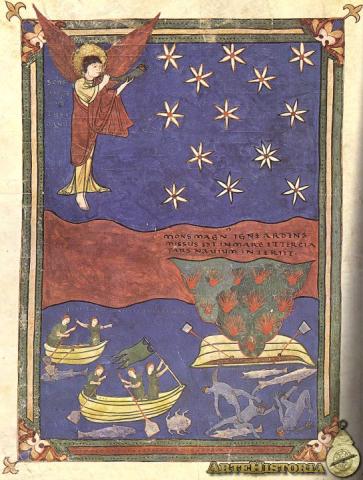 MONS MAGN IGNE ARDENS
MISSUS EST IN MARE ET TERCIA
PARS NAVIUM INTERIIT.
ARTEHISTORIA